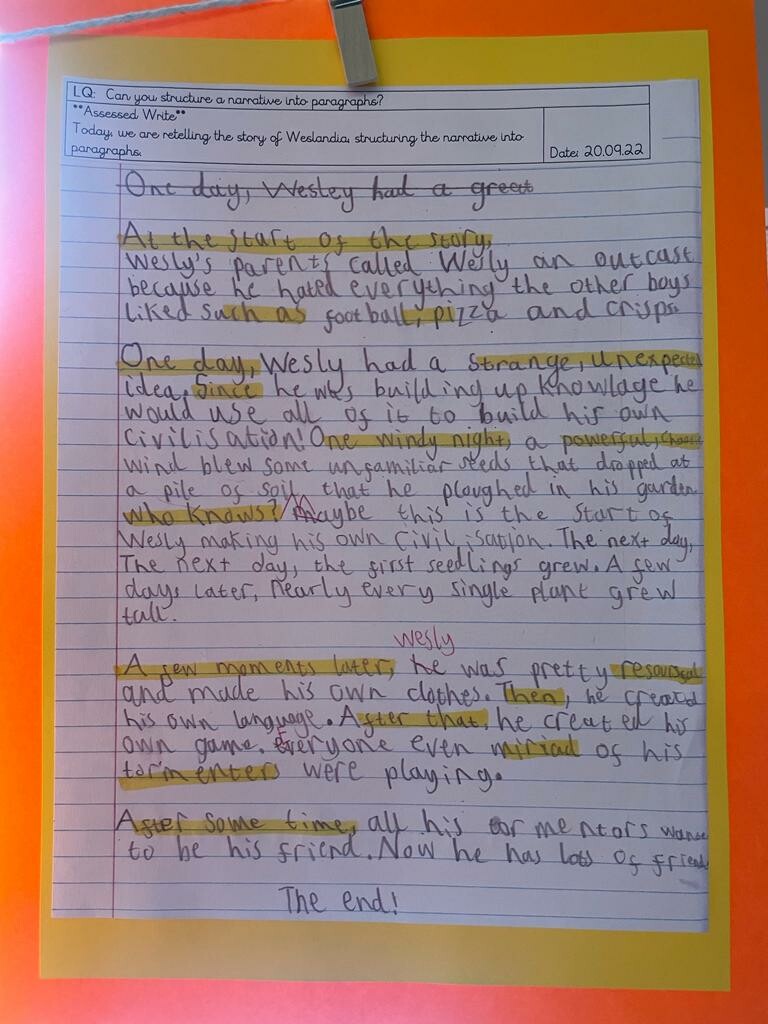 LQ: Can you structure a narrative into paragraphs?
**Assessed Write**
Today, we are retelling the story of Weslandia, structuring the narrative into
paragraphs.
Date: 20.09.22
One day, Wesley had a great
At the start of the story,
Wesly's parents called Wesly an outcast
because he hated everything the other boys
liked such as football, pizza and crisps.
One day, Wesly had a strange, unexpected
idea. Since he was building up knowladge he
would use all of it to build his own
civilisation! One windy night, a powerful,
wind blew some unfamiliar seeds that dropped at
a pile of soil that he ploughed in his garden
Who knows? Maybe this is the start of
Wesly making his own civilisation. The next day,
The next day, the first seedlings grew. A few
days later, nearly every single plant grew
tall.
Wesly
A few moments later, he was pretty
and made his own clothes. Then, he created
his own language. After that, he created his
own game. Everyone even miriad of his
tormenters were playing.
After some time, all his tormentors
to be his friend. Now he has lots of friend
The end!